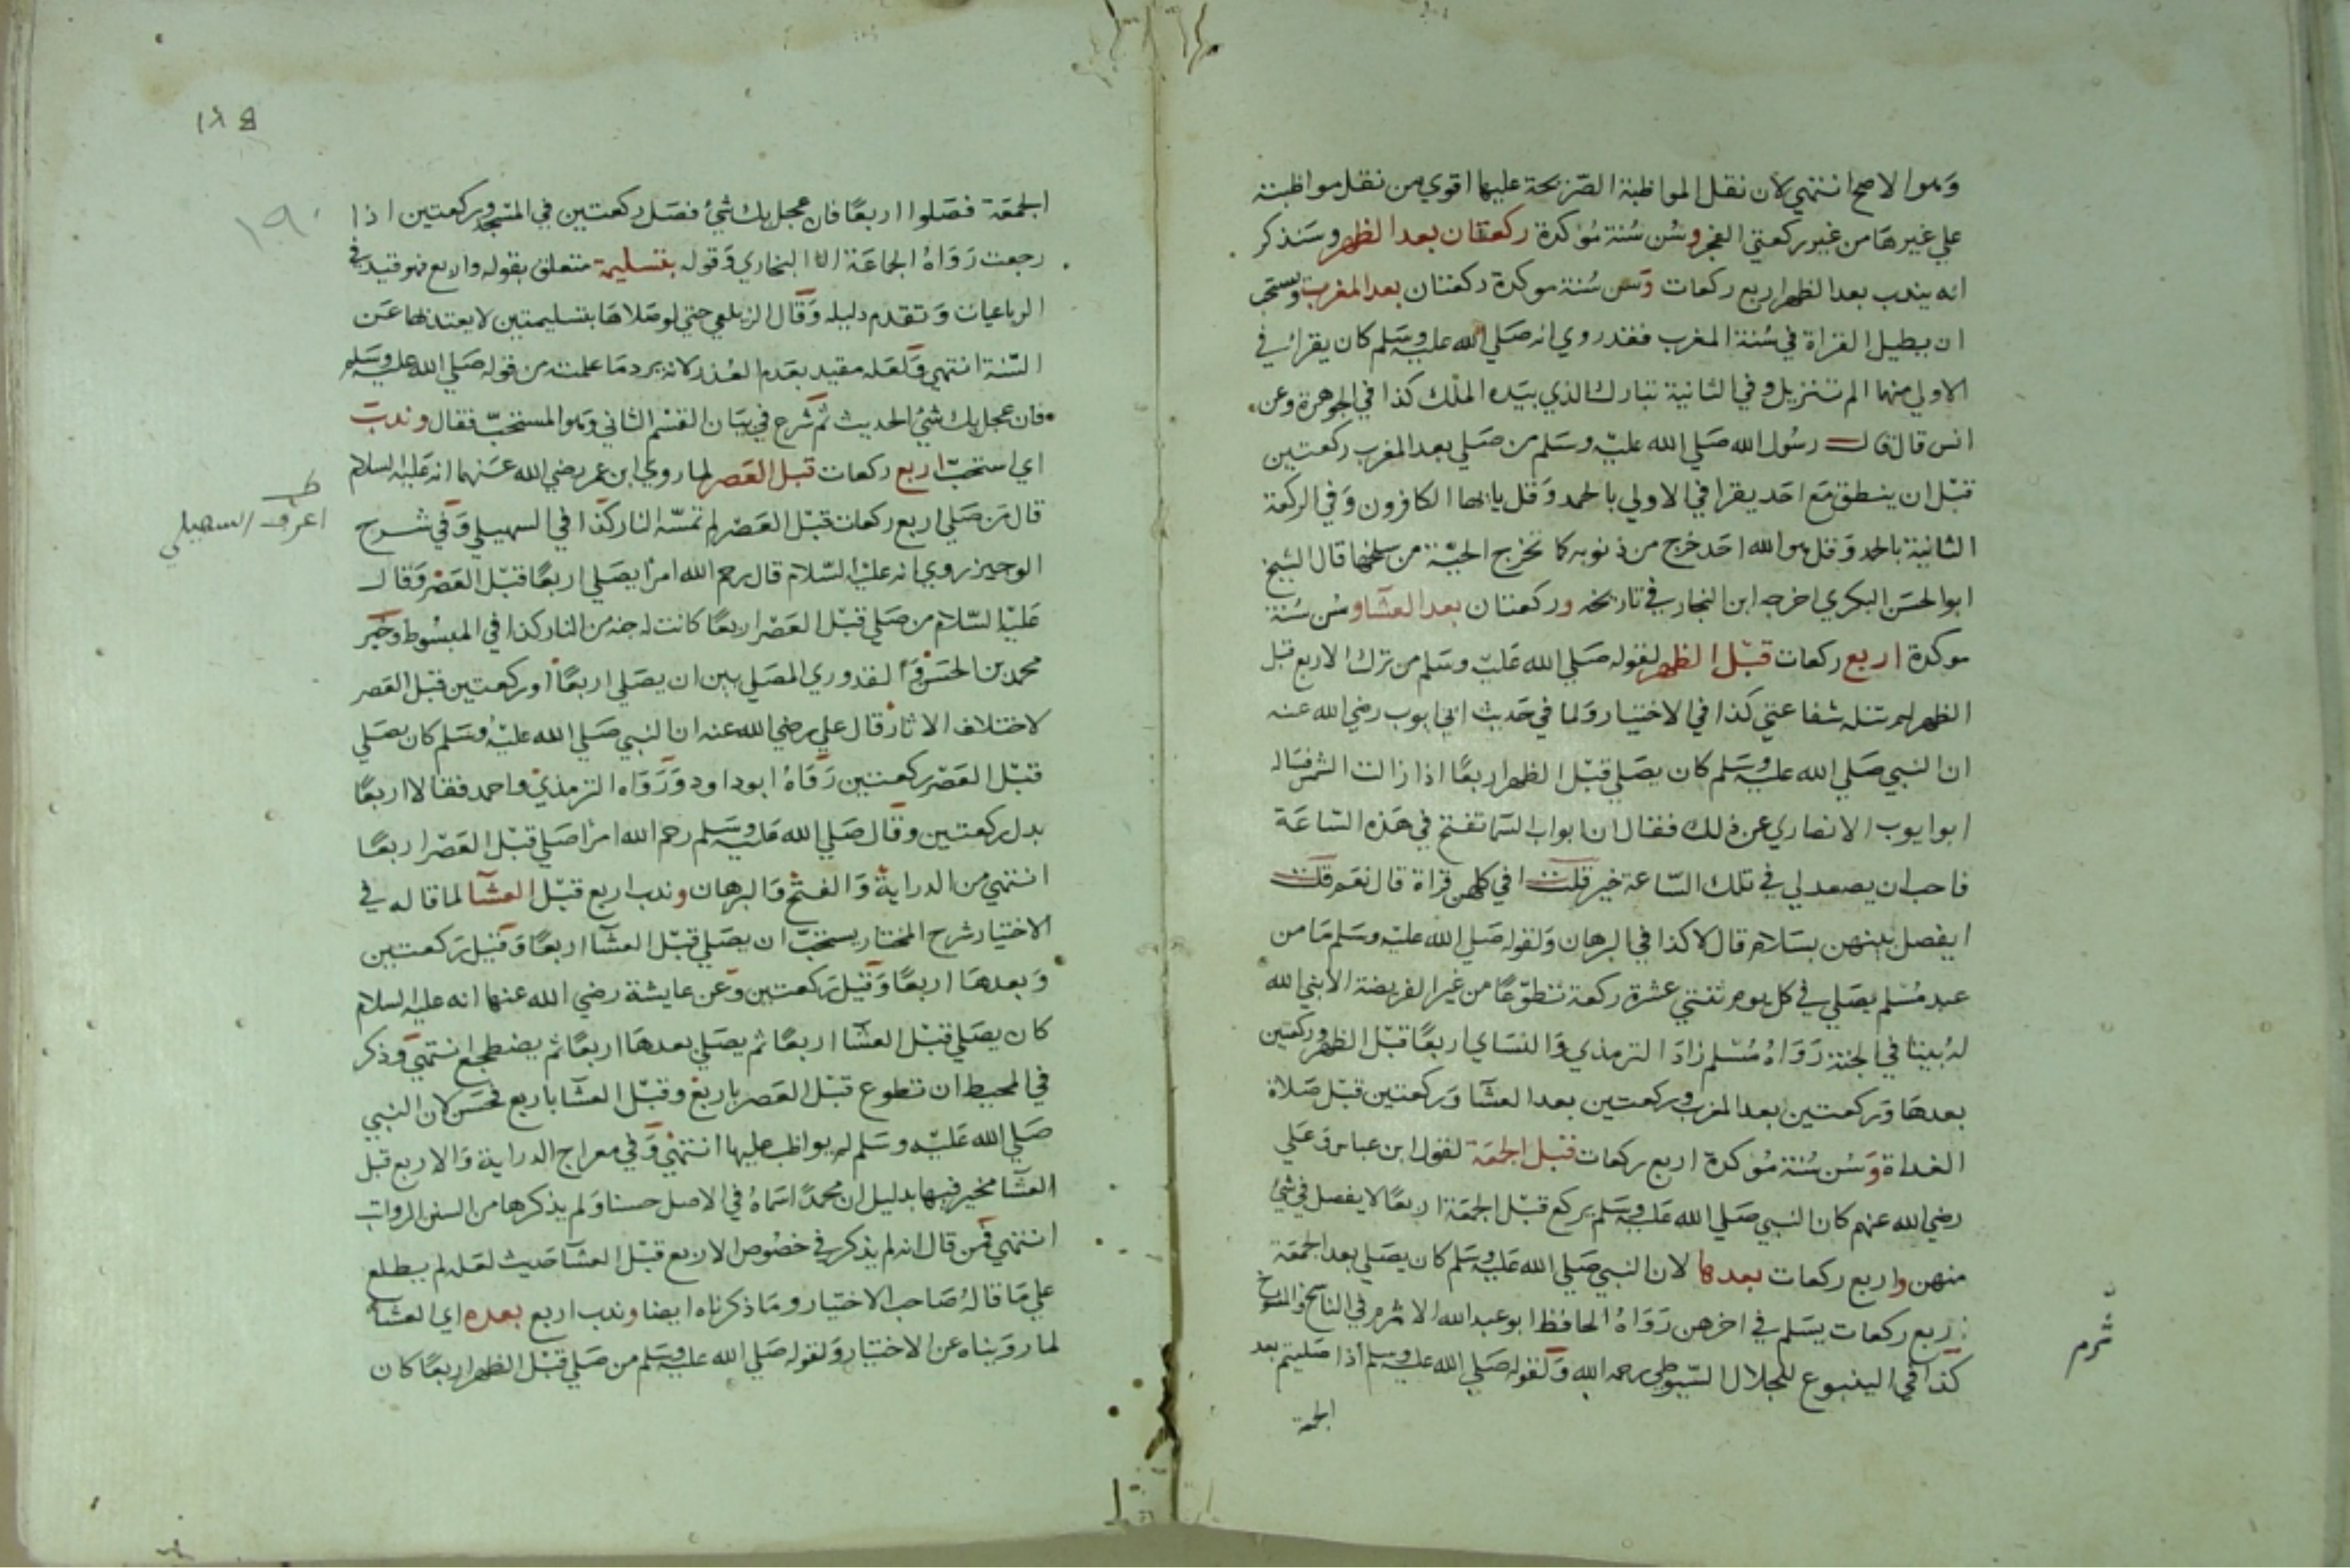 وهو الاصح انتهي لان نقل المواظبة الصريحة عليها اقوي من نقل مواظبته
علي غيرها من غير ركعتي الفجر وسن سنة مؤكدة ركعتان بعد الظهر وسنذكر
انه يندب بعد الظهر اربع ركعات وسن سنة موكدة ركعتان بعد المغرب ويستحب
ان يطيل القراة في سنة المغرب فقد روي انه صلي الله عليه وسلم كان يقرا في
الاولي منهما الم تنزيل وفي الثانية تبارك الذي بيده الملك كذا في الجوهرة وعن
انس قال قال رسول الله صلي الله عليه وسلم من صلي بعد المغرب ركعتين
قبل ان ينطق مع احد يقرا في الاولي بالحمد وقل يا ايها الكافرون وفي الركعة
الثانية بالحمد وقل هو الله احد خرج من ذنوبه كما تخرج الحية من سلخها قال الشيخ
ابو الحسن البكري اخرجه ابن النجار في تاريخه وركعتان بعد العشا وسن سنة
موكدة اربع ركعات قبل الظهر لقوله صلي الله عليه وسلم من ترك الاربع قبل
الظهر لم تنله شفاعتي كذا في الاختيار ولما في حديث ابي ايوب رضي الله عنه
ان النبي صلي الله عليه وسلم كان يصلي قبل الظهر اربعا اذا زالت الشمس فساله
ابو ايوب الانصاري عن ذلك فقال ان ابواب السما تفتح في هذه الساعة
فاحب ان يصعد لي في تلك الساعة خير قلت افي كلهن قراة قال نعم قلت
ايفصل بينهن بسلام قال لا كذا في البرهان ولقوله صلي الله عليه وسلم ما من
عبد مسلم يصلي في كل يوم ثنتي عشرة ركعة تطوعا من غير الفريضة الا بني الله
له بيتا في الجنة رواه مسلم زاد الترمذي والنساي اربعا قبل الظهر وركعتين
بعدها وركعتين بعد المغرب وركعتين بعد العشا وركعتين قبل صلاة
الغداة وسن سنة مؤكدة اربع ركعات قبل الجمعة لقول ابن عباس وعلي
رضي الله عنهم كان النبي صلي الله عليه وسلم يركع قبل الجمعة اربعا لا يفصل في شئ
منهن واربع ركعات بعدها لان النبي صلي الله عليه وسلم كان يصلي بعد الجمعة
اربع ركعات يسلم في اخرهن رواه الحافظ ابو عبد الله الاثرم في الناسخ والمنسوخ
كذا في الينبوع للجلال السيوطي رحمه الله ولقوله صلي الله عليه وسلم اذا صليتم بعد
الجمعة
ثرم
١٩٠
الجمعة فصلوا اربعا فان عجل بك شئ فصل ركعتين في المسجد وركعتين اذا
رجعت رواه الجماعة الا البخاري وقوله بتسليمة متعلق بقوله واربع فهو قيد في
الرباعيات وتقدم دليله وقال الزيلعي حتي لو صلاها بتسليمتين لا يعتد بها عن
السنة انتهي ولعله مقيد بعدم العذر لانه يرد ما علمت من قوله صلي الله عليه وسلم
فان عجل بك شئ الحديث ثم شرح في بيان القسم الثاني وهو المستحب فقال وندب
اي استحب اربع ركعات قبل العصر لما روي ابن عمر رضي الله عنهما انه عليه السلام
قال من صلي اربع ركعات قبل العصر لم تمسه النار كذا في السهيلي وفي شرح
اعرف السهيلي
الوجيز روي انه عليه السلام قال رحم الله امرأ يصلي اربعا قبل العصر وقال
عليه السلام من صلي قبل العصر اربعا كانت له جنة من النار كذا في المبسوط وخير
محمد بن الحسن والقدوري المصلي بين ان يصلي اربعا او ركعتين قبل العصر
لاختلاف الاثار قال علي رضي الله عنه ان النبي صلي الله عليه وسلم كان يصلي
قبل العصر ركعتين رواه ابو داود ورواه الترمذي واحمد فقالا اربعا
بدل ركعتين وقال صلي الله عليه وسلم رحم الله امرأ صلي قبل العصر اربعا
انتهي من الدراية والفتح والبرهان وندب اربع قبل العشا لما قاله في
الاختيار شرح المختار يستحب ان يصلي قبل العشا اربعا وقيل ركعتين
وبعدها اربعا وقيل ركعتين وعن عايشة رضي الله عنها انه عليه السلام
كان يصلي قبل العشا اربعا ثم يصلي بعدها اربعا ثم يضطجع انتهي وذكر
في المحيط ان تطوع قبل العصر باربع وقبل العشا باربع فحسن لان النبي
صلي الله عليه وسلم لم يواظب عليها انتهي وفي معراج الدراية والاربع قبل
العشا مخير فيها بدليل ان محمدا سماه في الاصل حسنا ولم يذكرها من السنن الرواتب
انتهي فمن قال انه لم يذكر في خصوص الاربع قبل العشا حديث لعله لم يطلع
علي ما قاله صاحب الاختيار وما ذكرناه ايضا وندب اربع بعده اي العشا
لما رويناه عن الاختيار ولقوله صلي الله عليه وسلم من صلي قبل الظهر اربعا كان